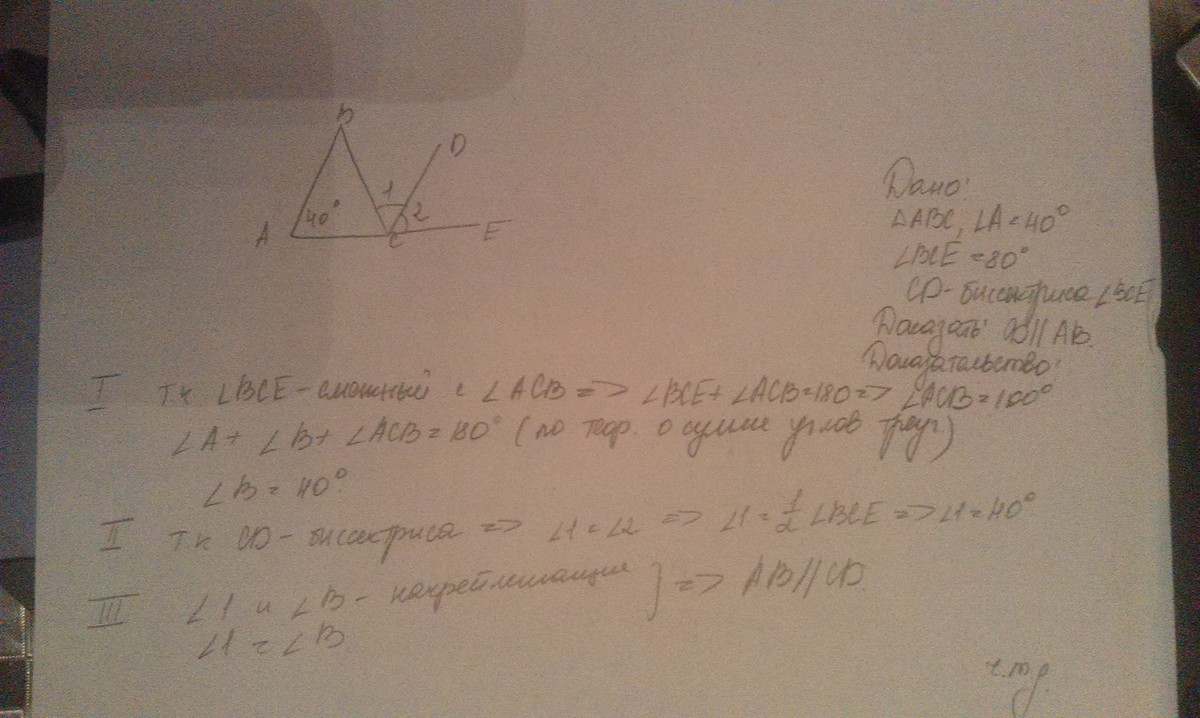 B
D
1
40°
2
A
C
E
Дано:
△ABC, ∠A=40°
∠BCE=80°
CD-биссектриса ∠BCE
Доказать: CD//AB.
Доказательство:
I т.к ∠BCE-смежный с ∠ACB=> ∠BCE+∠ACB=180=> ∠ACB=100°
∠A+∠B+∠ACB=180° (по теор. о сумме углов треуг)
∠B=40°.
II т.к CD-биссектриса => ∠1=∠2 => ∠1=1/2∠BCE=>∠1=40°
III ∠1 и ∠B- накрестлежащие } => AB//CD.
∠1=∠B.
ч.тд.